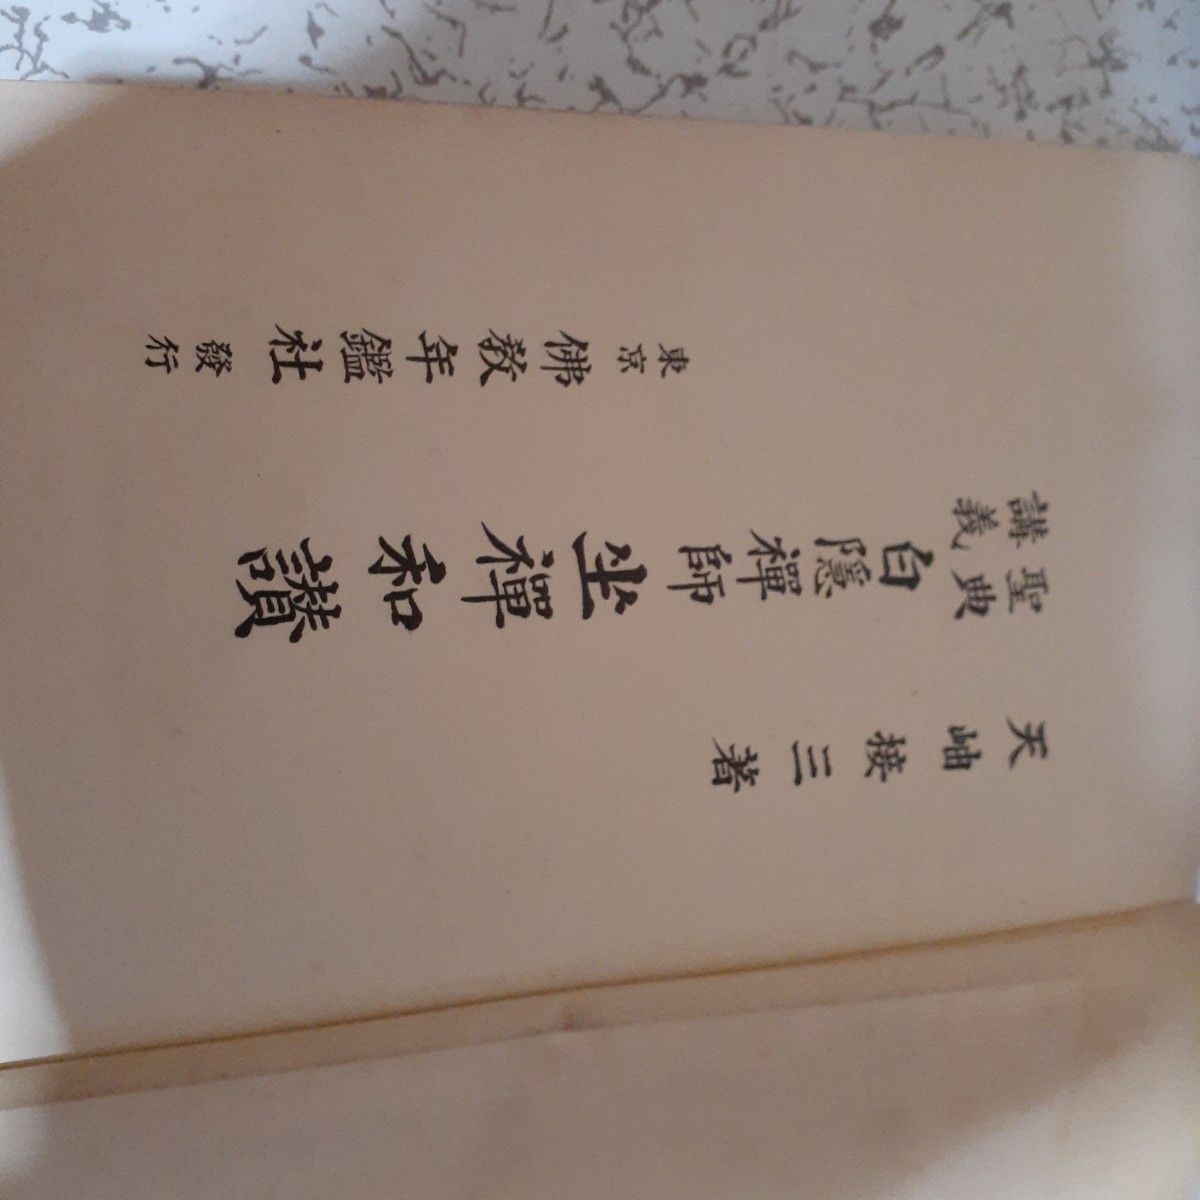 天岫接三著
聖典
講義
白隱禪師坐禪和讃
東京佛教年鑑社發行